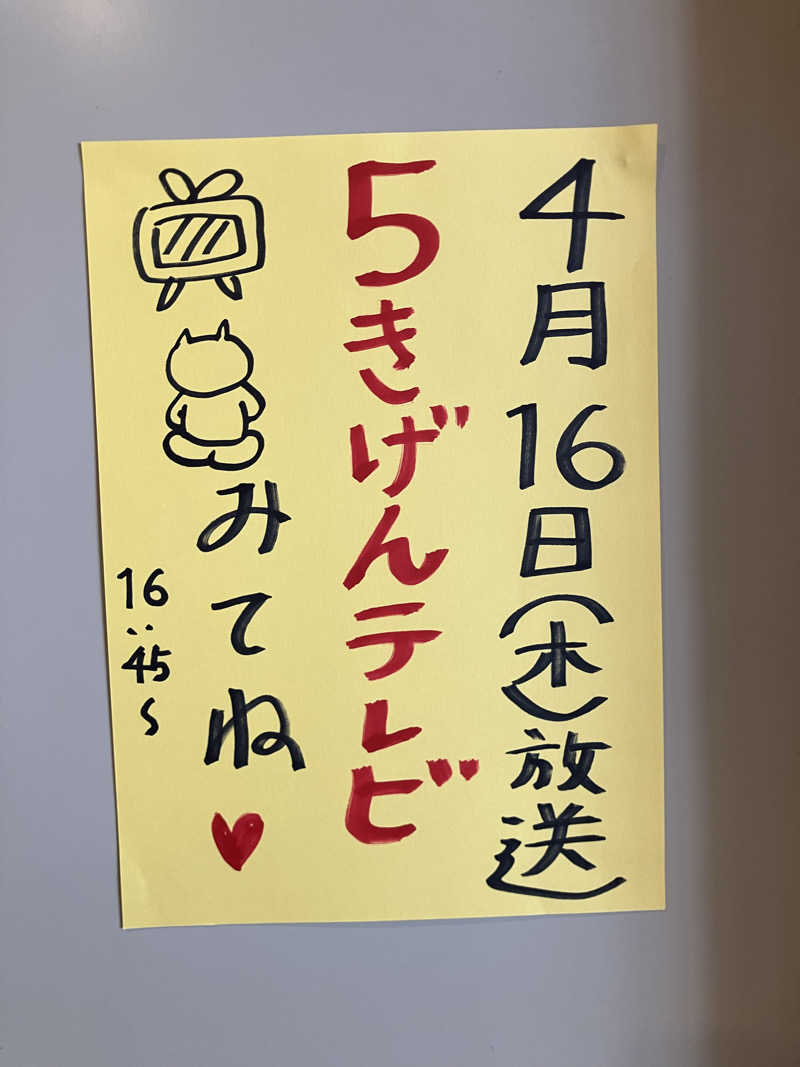 4月16日(木)放送
5きげんテレビ
みてね
16:45~